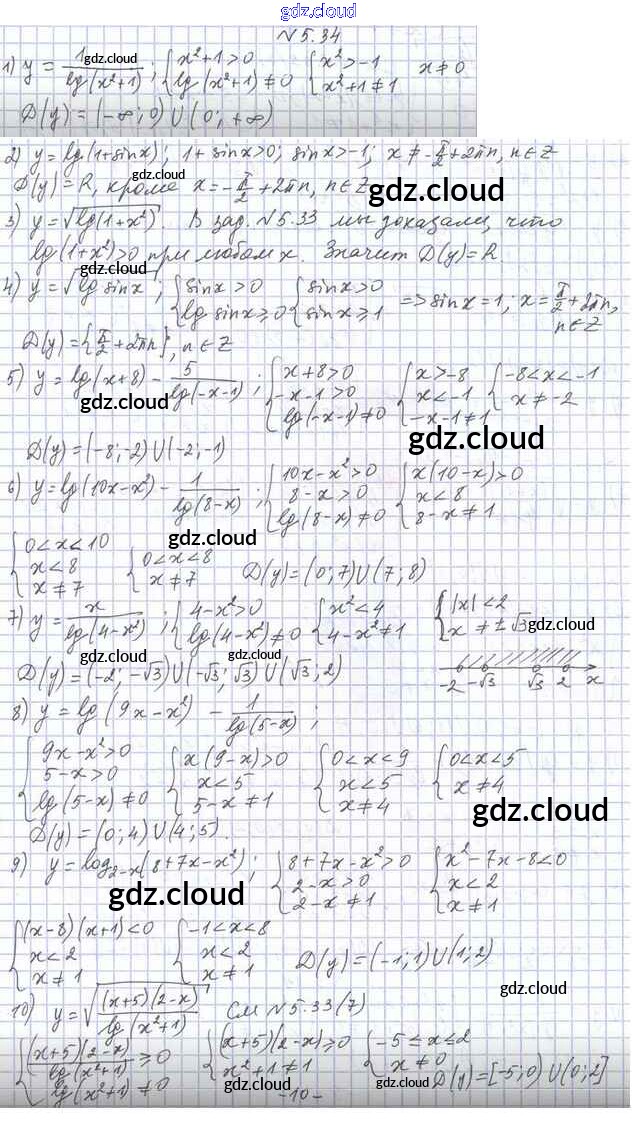 gdz.cloud
№ 5.34
1) y = 1/lg(x²+1) ; { x²+1>0 lg(x²+1)≠0 { x²>-1 x²+1≠1 x≠0
gdz.cloud
D(y) = (-∞; 0) ∪ (0; +∞)
2) y = lg(1+sinx); 1+sinx>0; sinx>-1; x≠-π/2+2πn, n∈Z
D(y) = R, кроме x = -π/2 + 2πn, n∈Z
gdz.cloud
3) y = √lg(1+x²). В зад. №5.33 мы доказали, что
lg(1+x²)>0 при любом x. Значит D(y)=R.
gdz.cloud
4) y = √lg sinx ; { sinx>0 lg sinx≥0 { sinx>0 sinx≥1 => sinx=1; x=π/2+2πn, n∈Z
D(y) = {π/2+2πn}, n∈Z
5) y = lg(x+8) - 5/lg(-x-1) ; { x+8>0 -x-1>0 lg(-x-1)≠0 { x>-8 x<-1 -x-1≠1 { -8<x<-1 x≠-2
gdz.cloud
gdz.cloud
D(y) = (-8;-2) ∪ (-2;-1)
6) y = lg(10x-x²) - 1/lg(8-x) ; { 10x-x²>0 8-x>0 lg(8-x)≠0 { x(10-x)>0 x<8 8-x≠1
gdz.cloud
{ 0<x<10 x<8 x≠7 { 0<x<8 x≠7 D(y)=(0;7)∪(7;8)
7) y = x/lg(4-x²) ; { 4-x²>0 lg(4-x²)≠0 { x²<4 4-x²≠1 { |x|<2 x≠±√3
gdz.cloud
gdz.cloud
gdz.cloud
D(y) = (-2; -√3) ∪ (-√3; √3) ∪ (√3; 2)
-2 -√3 √3 2 x
8) y = lg(9x-x²) - 1/lg(5-x) ;
{ 9x-x²>0 5-x>0 lg(5-x)≠0 { x(9-x)>0 x<5 5-x≠1 { 0<x<9 x<5 x≠4 { 0<x<5 x≠4
gdz.cloud
D(y) = (0; 4) ∪ (4; 5).
9) y = log₂₋ₓ(8+7x-x²) ; { 8+7x-x²>0 2-x>0 2-x≠1 { x²-7x-8<0 x<2 x≠1
gdz.cloud
{ (x-8)(x+1)<0 x<2 x≠1 { -1<x<8 x<2 x≠1 D(y) = (-1; 1) ∪ (1; 2)
gdz.cloud
10) y = √((x+5)(2-x)/lg(x²+1)) См №5.33(7)
{ (x+5)(2-x)/lg(x²+1) ≥0 lg(x²+1)≠0 { (x+5)(2-x)≥0 x²+1≠1 { -5≤x≤2 x≠0 D(y)=[-5;0)∪(0;2]
gdz.cloud
gdz.cloud
-10-